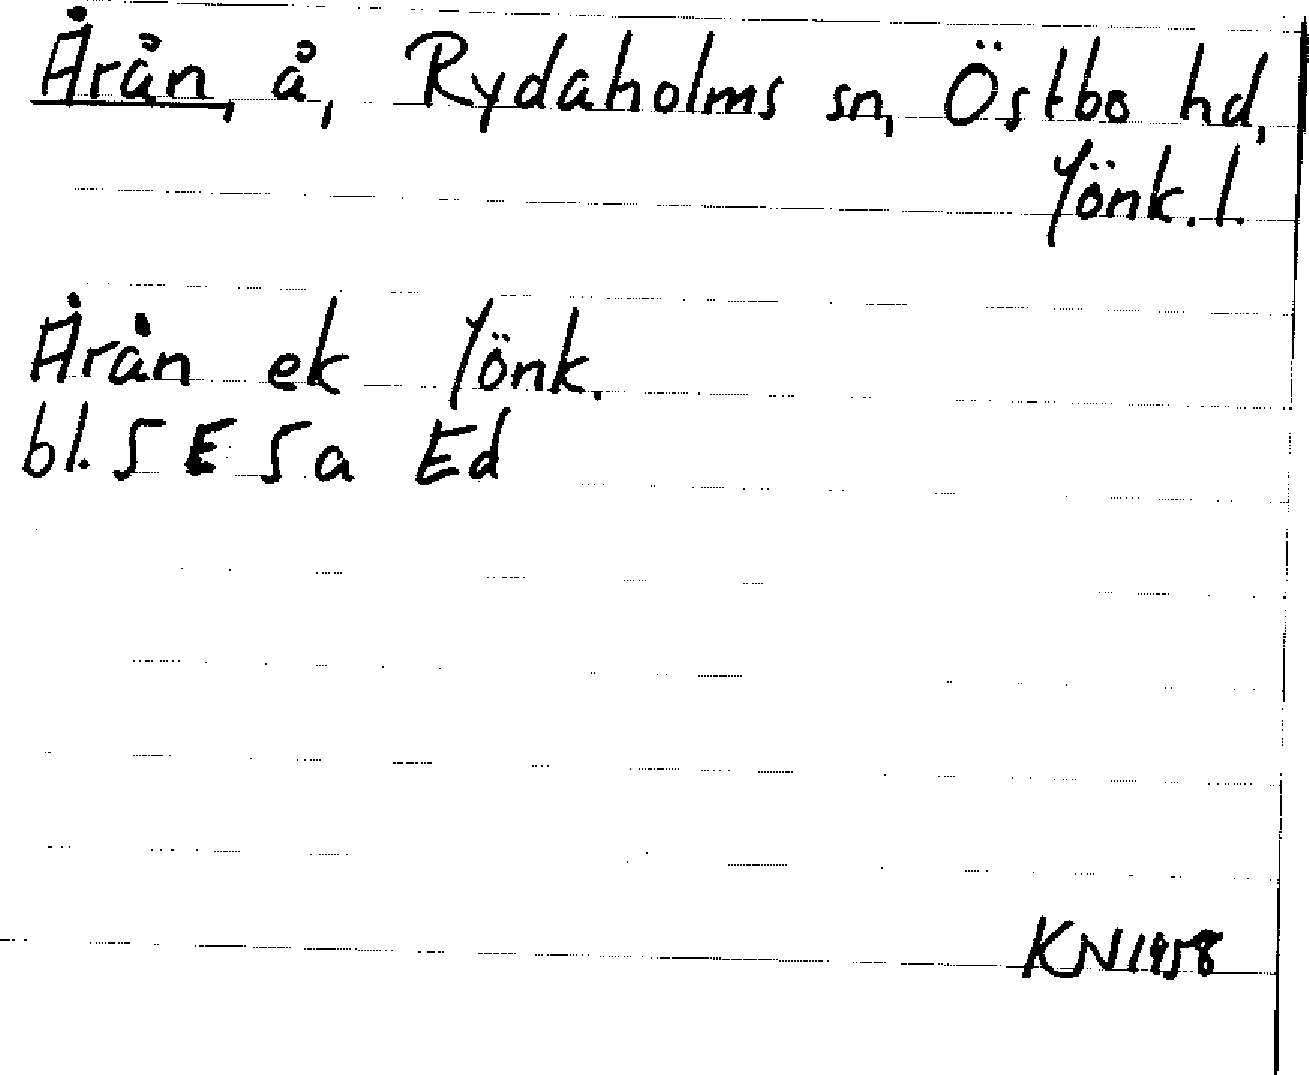 Årån, å, Rydaholms sn, Östbo hd,
Jönk. l.
Årån ek Jönk.
bl. 5 E 5 a Ed
KN 1958